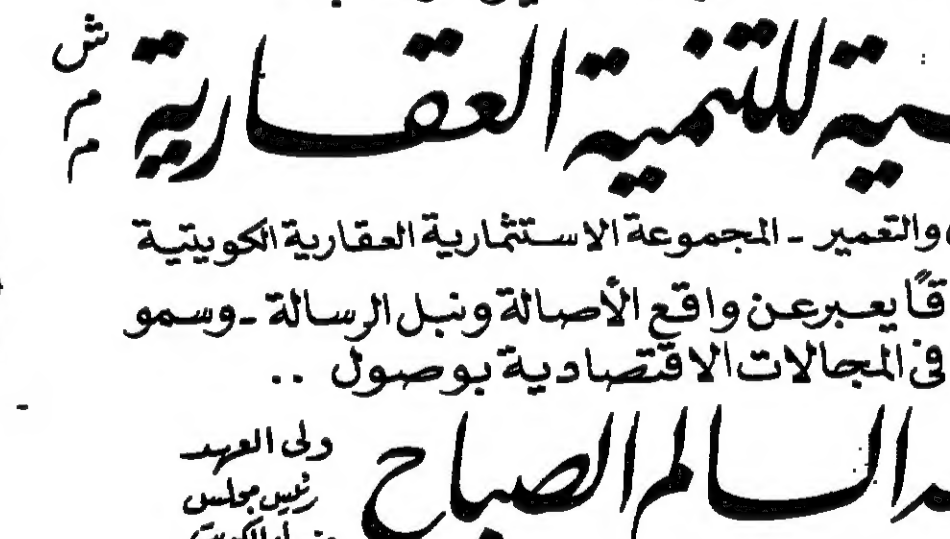 للتنمية العقارية ش م م
والتعمير - المجموعة الاستثمارية العقارية الكويتية
يعبر عن واقع الأصالة ونبل الرسالة - وسمو
في المجالات الاقتصادية بوصول ..
السالم الصباح
ولى العهد
رئيس مجلس